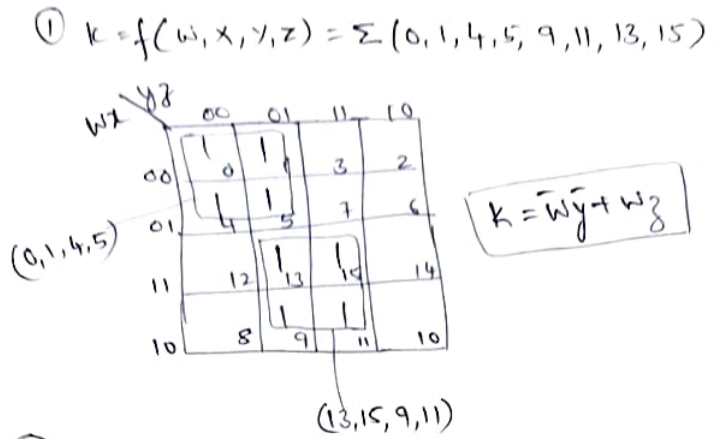 ① K = f(W, X, Y, Z) = Σ(0, 1, 4, 5, 9, 11, 13, 15)
WX YZ 00 01 11 10
00 1 0 1 1 3 2
01 1 4 1 5 7 6
11 12 1 13 1 15 14
10 8 1 9 1 11 10
(0, 1, 4, 5)
K = W̄Ȳ + WZ
(13, 15, 9, 11)